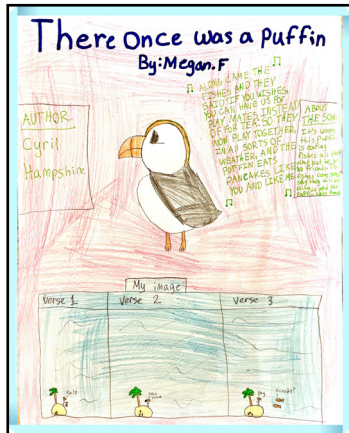 There Once was a Puffin
By: Megan. F
AUTHOR
Cyril
Hampshire
ALONG CAME THE
FISHES AND THEY
SAID IF YOU WISHES,
YOU CAN HAVE US FOR
PLAY MATES, INSTEAD
OF FOR TEA, SO THEY
NOW PLAY TOGETHER,
IN ALL SORTS OF
WEATHER, AND THE
PUFFIN EATS
PANCAKES LIKE
YOU AND LIKE ME
ABOUT
THE SONG
It's when
this Puffin
is eating
Fishes all
My image
Verse 1
Verse 2
Verse 3